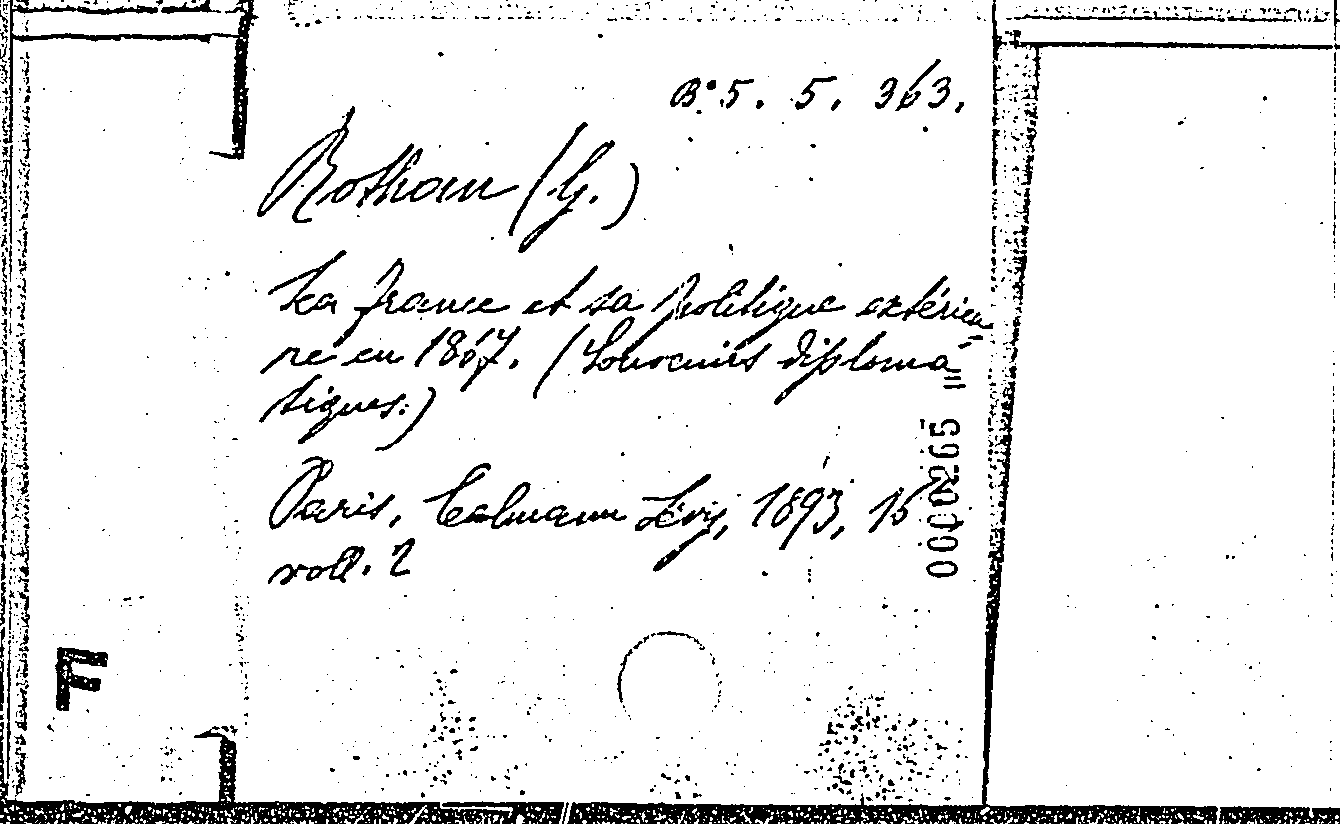 B° 5. 5. 363.
Rothan (G.)
La france et sa politique extérieu=
re en 1867. (Souvenirs diploma=
tiques.)
Paris, Calmann Lévy, 1893, 16°
voll. 2
0000265
F